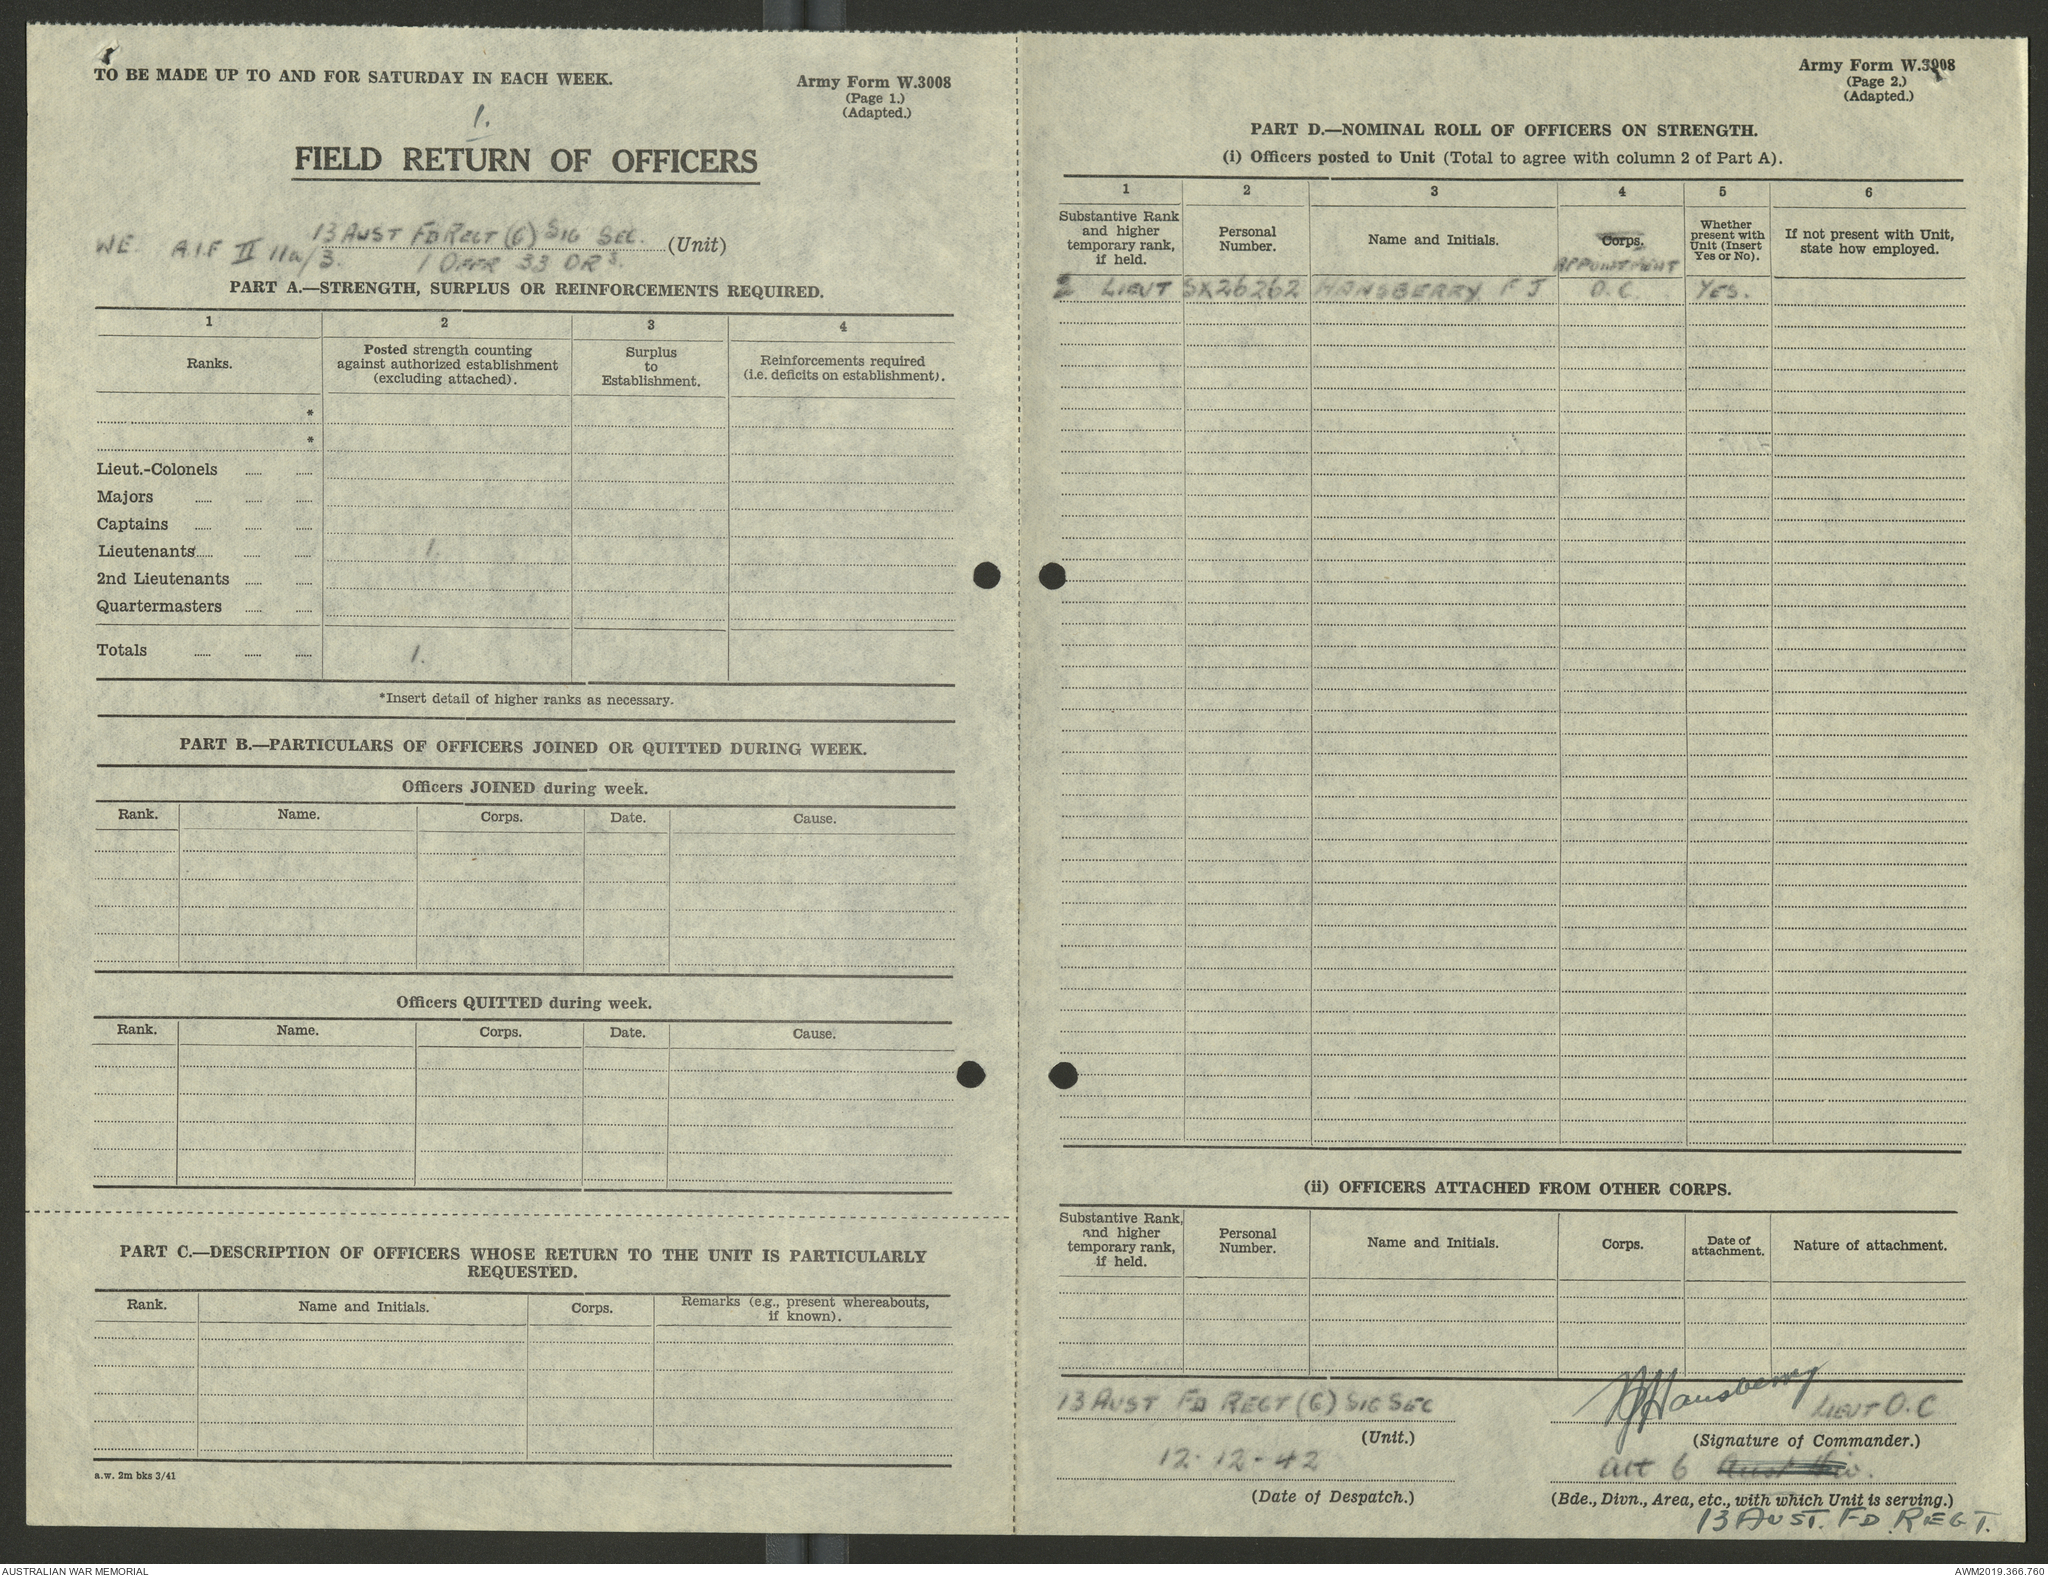 TO BE MADE UP TO AND FOR SATURDAY IN EACH WEEK.
Army Form W.3008
(Page 1.)
(Adapted.)
1.
FIELD RETURN OF OFFICERS
13 AUST FD REGT (G) SIG SEC. (Unit)
WE. A.I.F II 11a/3. 1 OFFR 33 ORs.
PART A.—STRENGTH, SURPLUS OR REINFORCEMENTS REQUIRED.
1 2 3 4
Ranks. Posted strength counting against authorized establishment (excluding attached). Surplus to Establishment. Reinforcements required (i.e. deficits on establishment).
*
*
Lieut.-Colonels
Majors
Captains
Lieutenants 1.
2nd Lieutenants
Quartermasters
Totals 1.
*Insert detail of higher ranks as necessary.
PART B.—PARTICULARS OF OFFICERS JOINED OR QUITTED DURING WEEK.
Officers JOINED during week.
Rank. Name. Corps. Date. Cause.
Officers QUITTED during week.
Rank. Name. Corps. Date. Cause.
PART C.—DESCRIPTION OF OFFICERS WHOSE RETURN TO THE UNIT IS PARTICULARLY
REQUESTED.
Rank. Name and Initials. Corps. Remarks (e.g., present whereabouts, if known).
a.w. 2m bks 3/41
Army Form W.3008
(Page 2.)
(Adapted.)
PART D.—NOMINAL ROLL OF OFFICERS ON STRENGTH.
(i) Officers posted to Unit (Total to agree with column 2 of Part A).
1 2 3 4 5 6
Substantive Rank and higher temporary rank, if held. Personal Number. Name and Initials. Corps. APPOINTMENT Whether present with Unit (Insert Yes or No). If not present with Unit, state how employed.
LIEUT SX26262 HANSBERRY F J O.C. YES.
(ii) OFFICERS ATTACHED FROM OTHER CORPS.
Substantive Rank, and higher temporary rank, if held. Personal Number. Name and Initials. Corps. Date of attachment. Nature of attachment.
13 AUST FD REGT (G) SIG SEC
(Unit.)
12-12-42
(Date of Despatch.)
FJHansberry LIEUT O.C
(Signature of Commander.)
att 6 Aust Div.
(Bde., Divn., Area, etc., with which Unit is serving.)
13 AUST. FD. REGT.
AUSTRALIAN WAR MEMORIAL
AWM2019.366.760